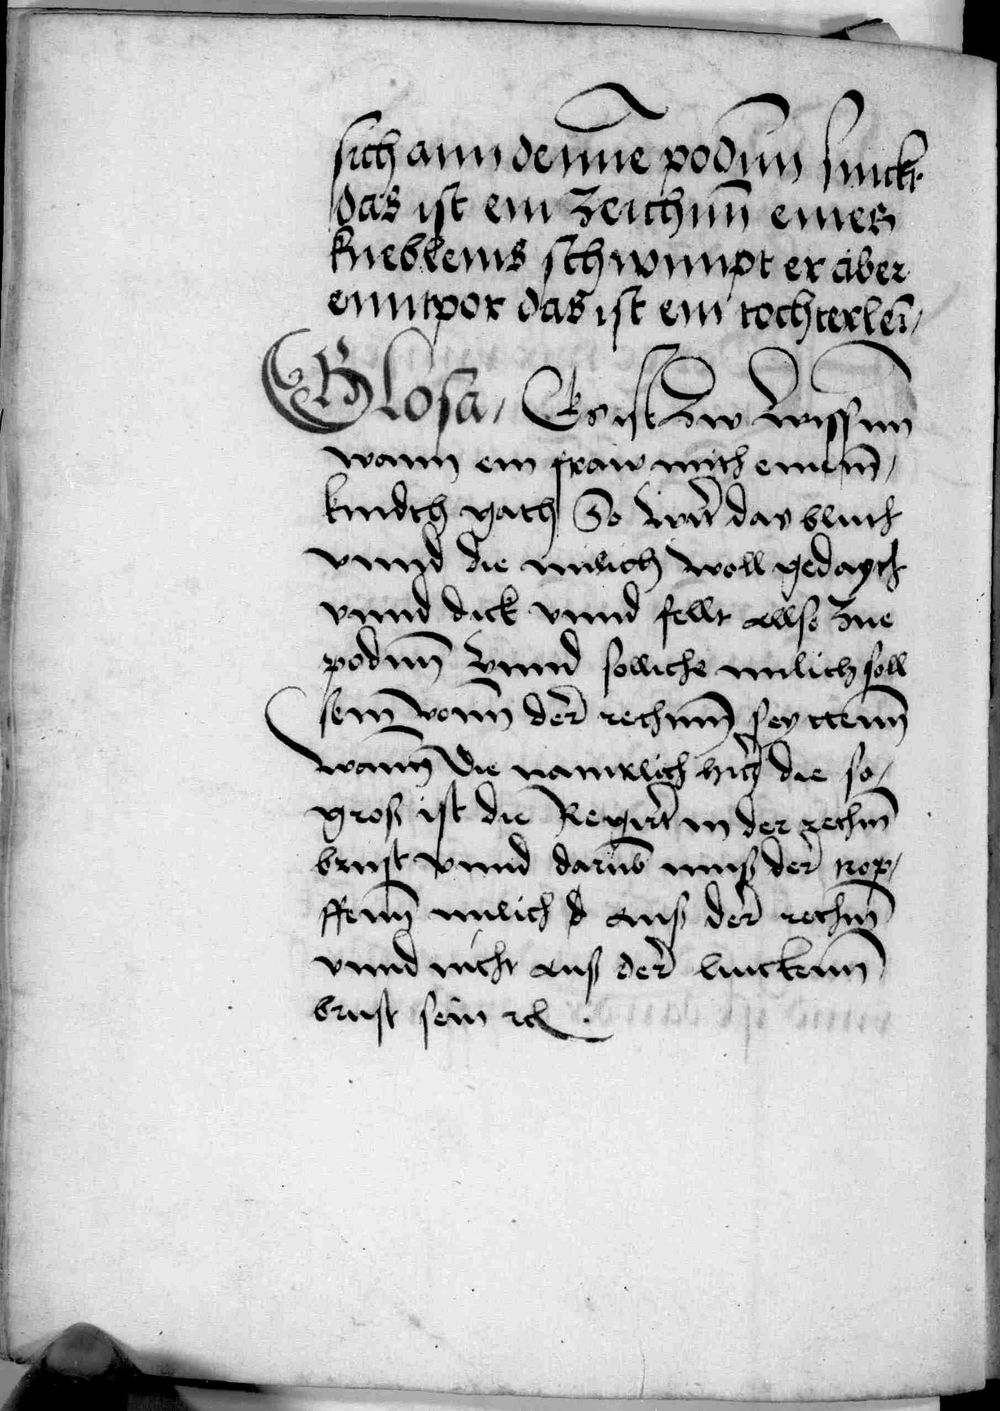 sich ann denne podūn sinckt
das ist ein zeichnn̄ eines
knebleins schwimpt er aber
enntpor das ist ein tochterlein̄/
Glosa / Es ist zw wissenn
wann ein fraw mith einem̄/
kindth gath So wirt das bluth
vnnd die milich woll gedayth
vnnd dick vnnd fellt allso zue
podnn̄ Vnnd solliche milich soll
sein vonn̄ der rechnn̄ seyttenn̄
wann̄ Die naturlich hicz die so/
gros ist die Regirt in der rechn̄
brust vnnd darūb mus der trop/
ffenn̄ milich aus der rechn̄
vnnd nicht aus der linckenn̄
brust sein rc